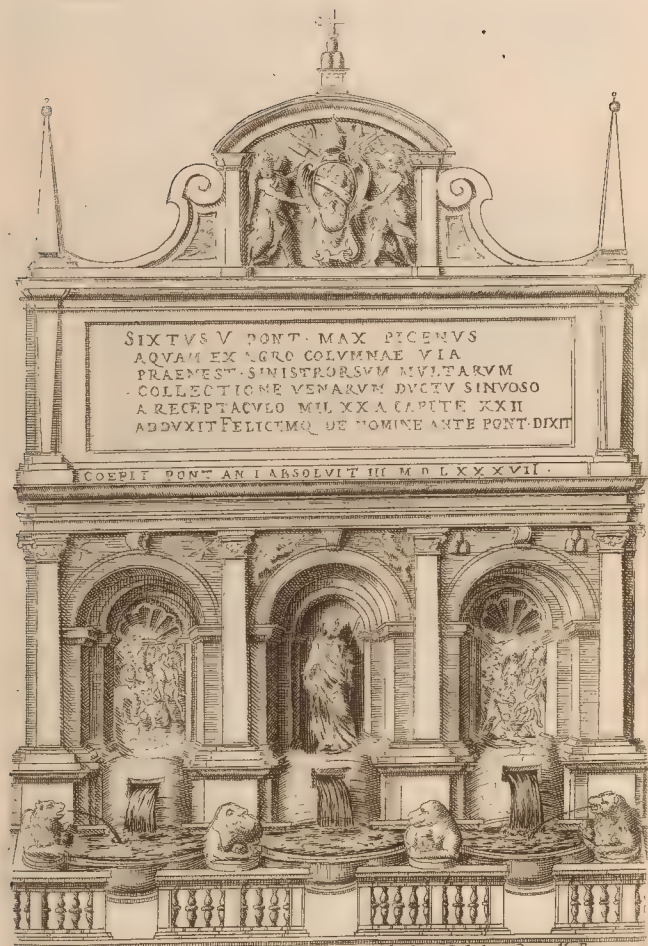 SIXTVS V PONT · MAX PICENVS
AQVAM EX AGRO COLVMNAE VIA
PRAENEST · SINISTRORSVM MVLTARVM
COLLECTIONE VENARVM DVCTV SINVOSO
A RECEPTACVLO MIL XX A CAPITE XXII
ADDVXIT FELICEMQ DE NOMINE ANTE PONT · DIXIT
COEPIT PONT AN I ABSOLVIT III M D LXXXVII ·